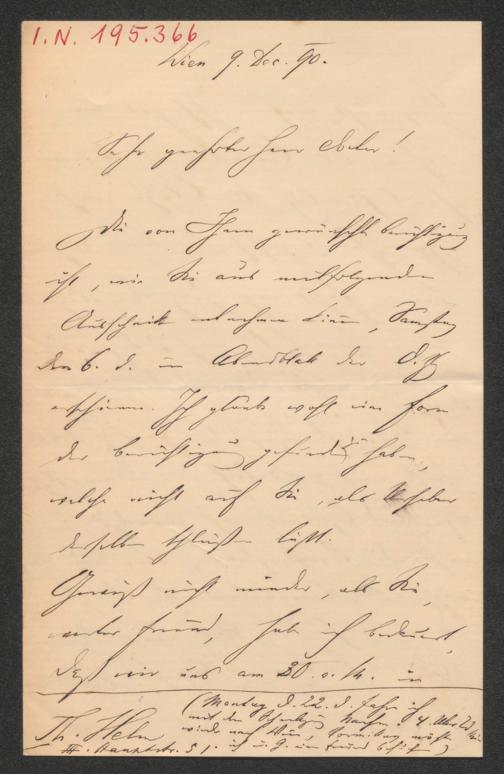 I.N. 195.366
Wien 9. Dec. 90.
Sehr geehrter Herr Ober!
Die von Ihnen gewünschte Berichtigung
ist, wie Sie aus mitfolgendem
Ausschnitt entnehmen können, Samstag
den 6. d. im Abendblatt der D. Z.
erschienen. Ich glaube wohl eine Form
der Berichtigung gefunden zu haben,
welche nicht auf Sie, als Urheber
derselben schließen läßt.
Gewiß nicht minder, als Sie,
werter Freund, habe ich bedauert,
daß wir uns am 30. v. M. in
(Montag d. 22. d. fahre ich
mit dem Nachm 4 Uhr
wieder nach Wien, Vormittag
Th. Helm
III. Hauptstr. 51.